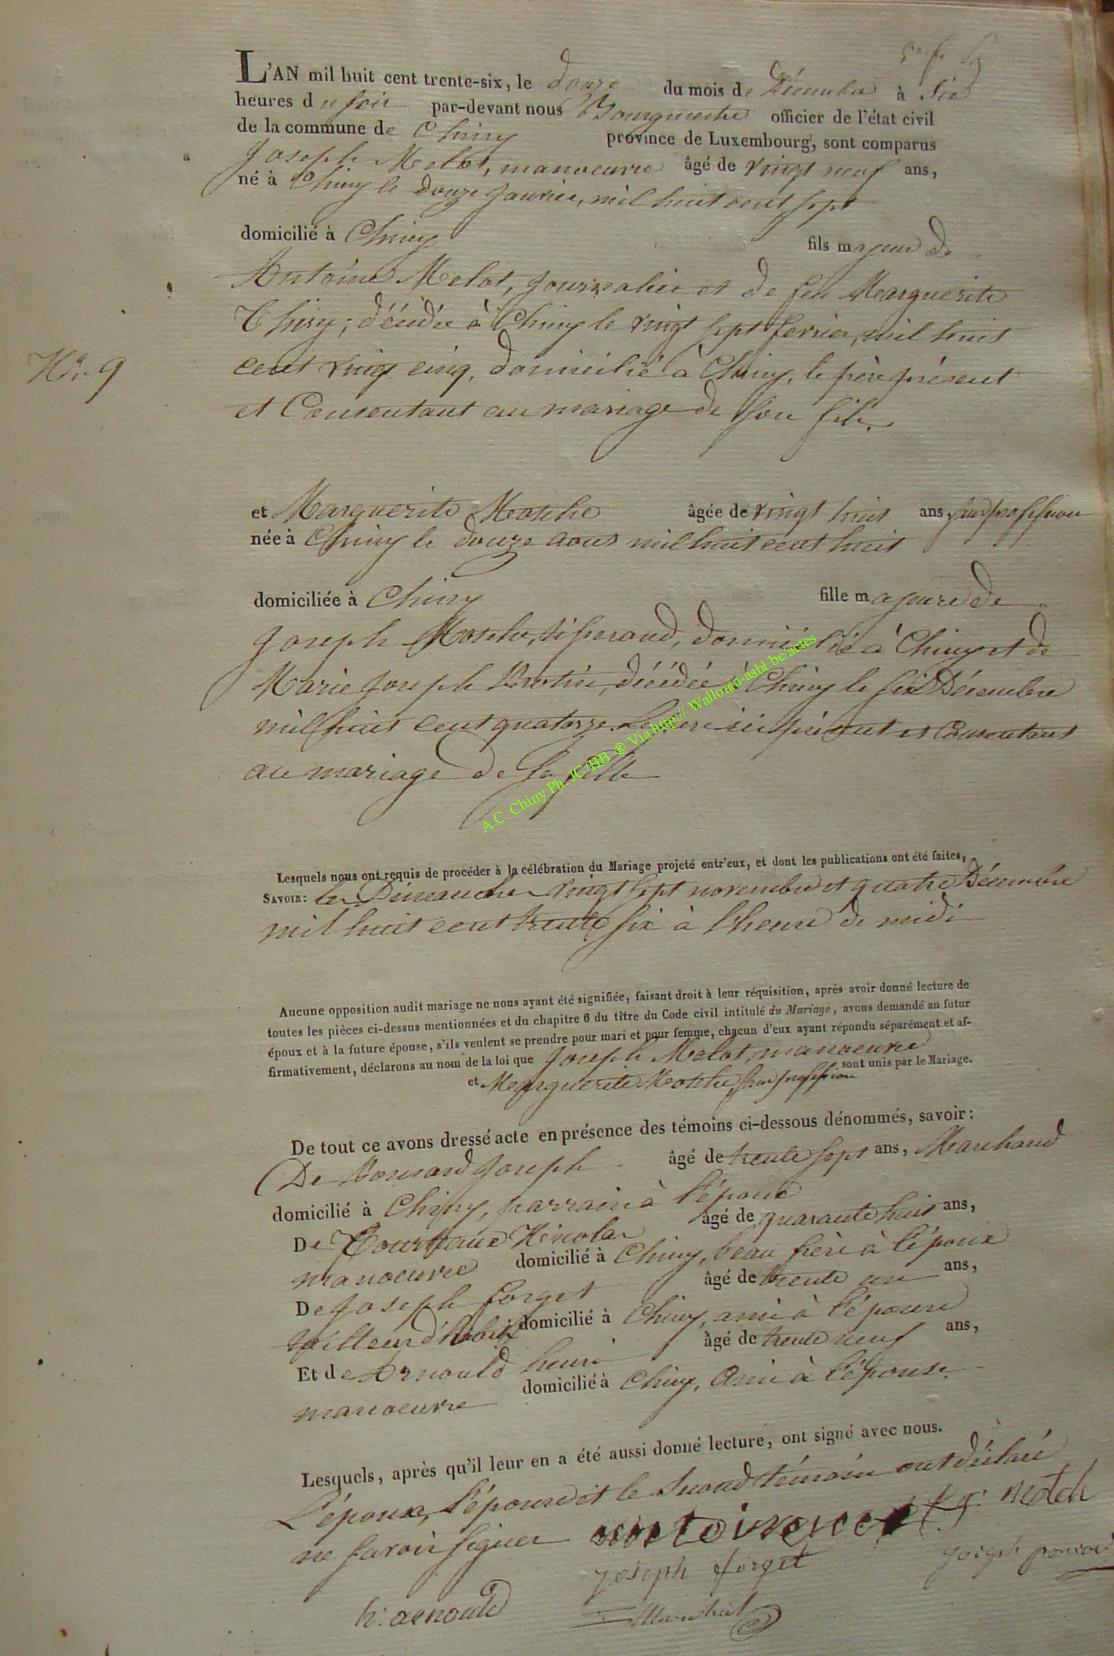 L'AN mil huit cent trente-six, le douze du mois de Décembre à six
heures du soir par-devant nous Bourgmestre officier de l'état civil
de la commune de Chiny province de Luxembourg, sont comparus
Joseph Melot, manoeuvre âgé de vingt neuf ans,
né à Chiny le douze janvier, mil huit cent sept
domicilié à Chiny fils majeur de
Antoine Melot, journalier et de feu Marguerite
Thiry, décédée à Chiny le vingt sept fevrier, mil huit
cent vingt cinq, domicilié à Chiny, le père présent
et Consentant au mariage de son fils.
N° 9
et Marguerite âgée de vingt huit ans, sans profession
née à Chiny le douze aout mil huit cent huit
domiciliée à Chiny fille majeure de
Joseph domicilié à Chiny et de
Marie Joseph décédée à Chiny le six Décembre
mil huit cent quatorze. Le père ici présent et Consentant
au mariage de sa fille
A.C. Chiny Ph. JC/HB ® Via http:// Wallonia-asbl.be/actes
Lesquels nous ont requis de procéder à la célébration du Mariage projeté entr'eux, et dont les publications ont été faites,
SAVOIR: les Dimanche vingt sept novembre et quatre Décembre
mil huit cent trente six à l'heure de midi
Aucune opposition audit mariage ne nous ayant été signifiée, faisant droit à leur réquisition, après avoir donné lecture de
toutes les pièces ci-dessus mentionnées et du chapitre 6 du titre du Code civil intitulé du Mariage, avons demandé au futur
époux et à la future épouse, s'ils veulent se prendre pour mari et pour femme, chacun d'eux ayant répondu séparément et af-
firmativement, déclarons au nom de la loi que Joseph Melot, manoeuvre
et Marguerite sans profession sont unis par le Mariage.
De tout ce avons dressé acte en présence des témoins ci-dessous dénommés, savoir:
De Joseph âgé de trente sept ans, Marchand
domicilié à Chiny, parrain à l'épouse
De Nicolas âgé de quarante huit ans,
manoeuvre domicilié à Chiny, beau frère à l'époux
De Joseph forget âgé de trente un ans,
tailleur d'habits domicilié à Chiny, ami à l'épouse
Et de Arnould henri âgé de trente neuf ans,
manoeuvre domicilié à Chiny, Ami à l'épouse.
Lesquels, après qu'il leur en a été aussi donné lecture, ont signé avec nous.
L'époux, l'épouse et le second témoin ont déclaré
ne savoir signer
joseph forget
h: arnould